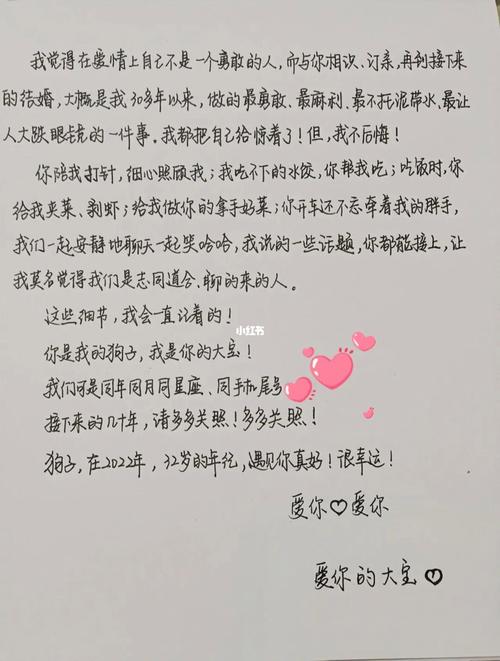 我觉得在爱情上自己不是一个勇敢的人,而与你相识、订亲,再到接下来
的结婚,大概是我30多年以来,做的最勇敢、最麻利、最不托泥带水、最让
人大跌眼镜的一件事。我都把自己给惊着了!但,我不后悔!
你陪我打针,细心照顾我;我吃不下的水饺,你帮我吃;吃饭时,你
给我夹菜、剥虾;给我做你的拿手好菜;你开车还不忘牵着我的胖手,
我们一起安静地聊天一起笑哈哈,我说的一些话题,你都能接上,让
我莫名觉得我们是志同道合、聊的来的人。
这些细节,我会一直记着的!
小红书
你是我的狗子,我是你的大宝!
我们可是同年同月同星座、同手机尾号
接下来的几十年,请多多关照!多多关照!
狗子,在2022年,32岁的年纪,遇见你真好!很幸运!
爱你♡爱你
爱你的大宝♡